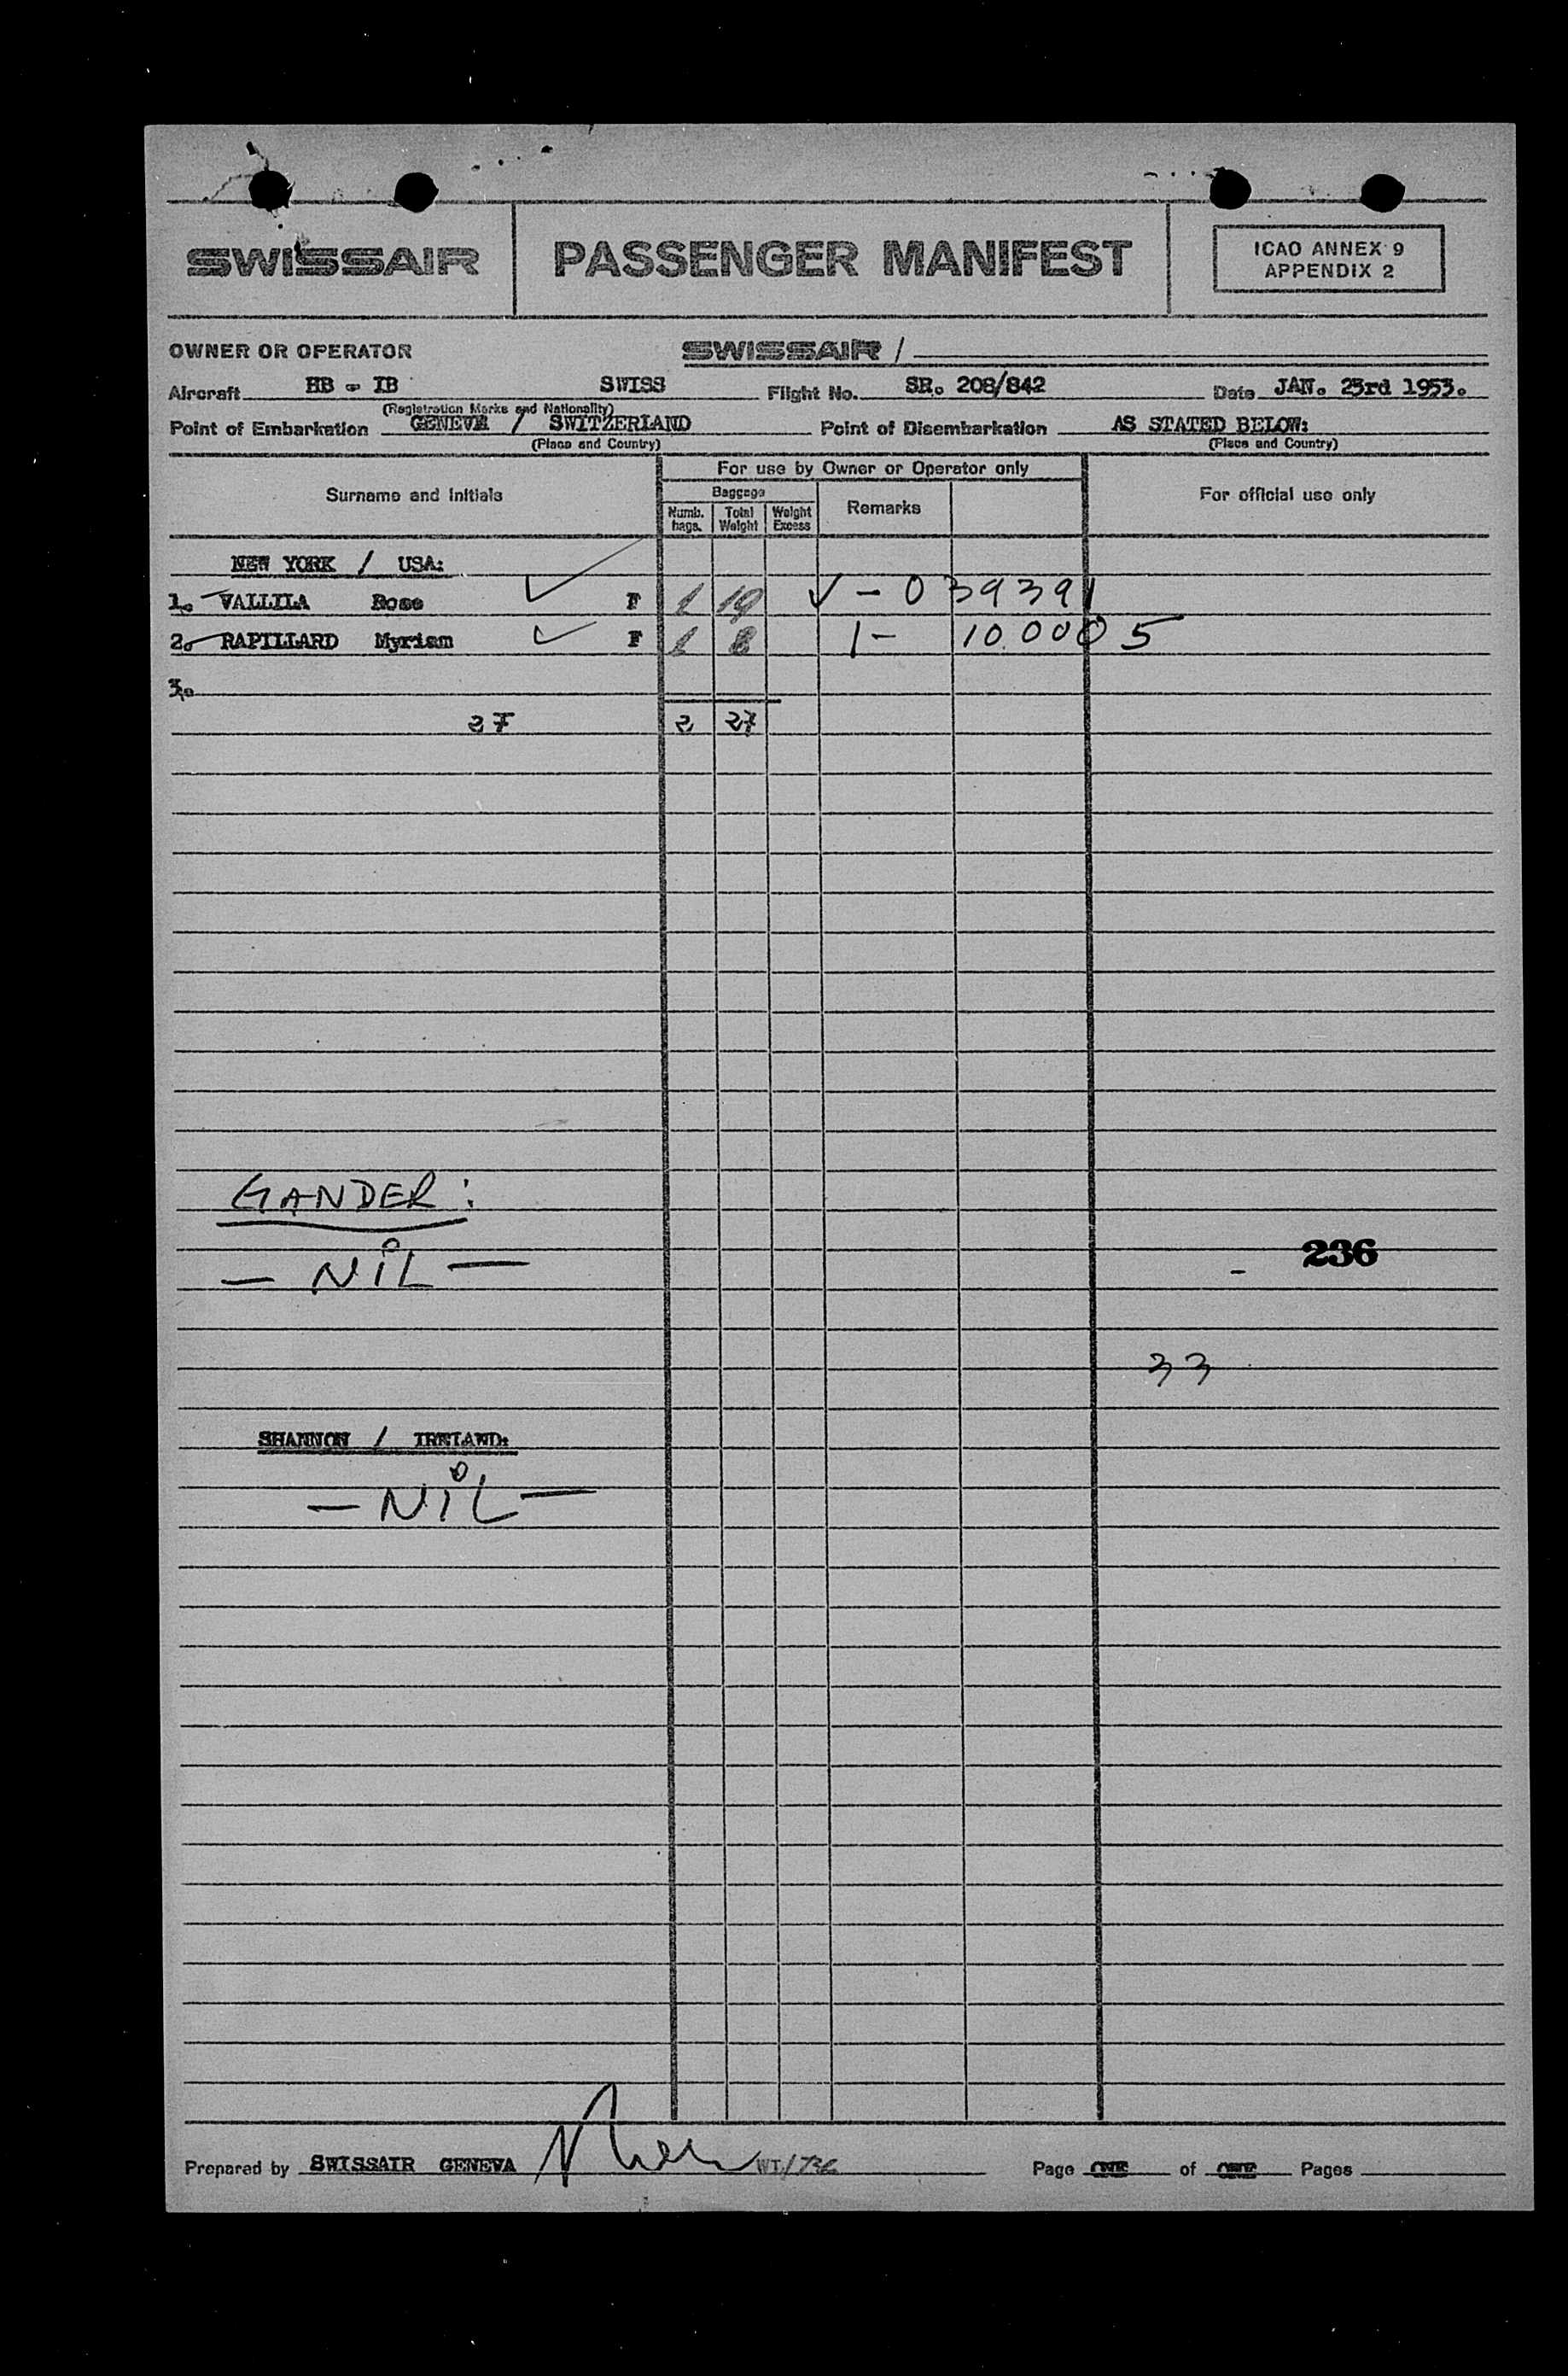 SWISSAIR
PASSENGER MANIFEST
ICAO ANNEX 9
APPENDIX 2
OWNER OR OPERATOR SWISSAIR /
Aircraft HB - IB SWISS Flight No. SR. 208/842 Date JAN. 23rd 1953.
(Registration Marks and Nationality)
Point of Embarkation GENEVA / SWITZERLAND Point of Disembarkation AS STATED BELOW:
(Place and Country) (Place and Country)
For use by Owner or Operator only
Surname and Initials Baggage Remarks For official use only
Numb. bags. Total Weight Weight Excess
NEW YORK / USA:
1. VALLILA Rose F 1 19 V - 039391
2. RAPILLARD Myriam F 1 8 1 - 10.000 5
3.
2F 2 27
GANDER:
— NIL —
236
33
SHANNON / IRELAND:
— NIL —
Prepared by SWISSAIR GENEVA WT/736 Page ONE of ONE Pages